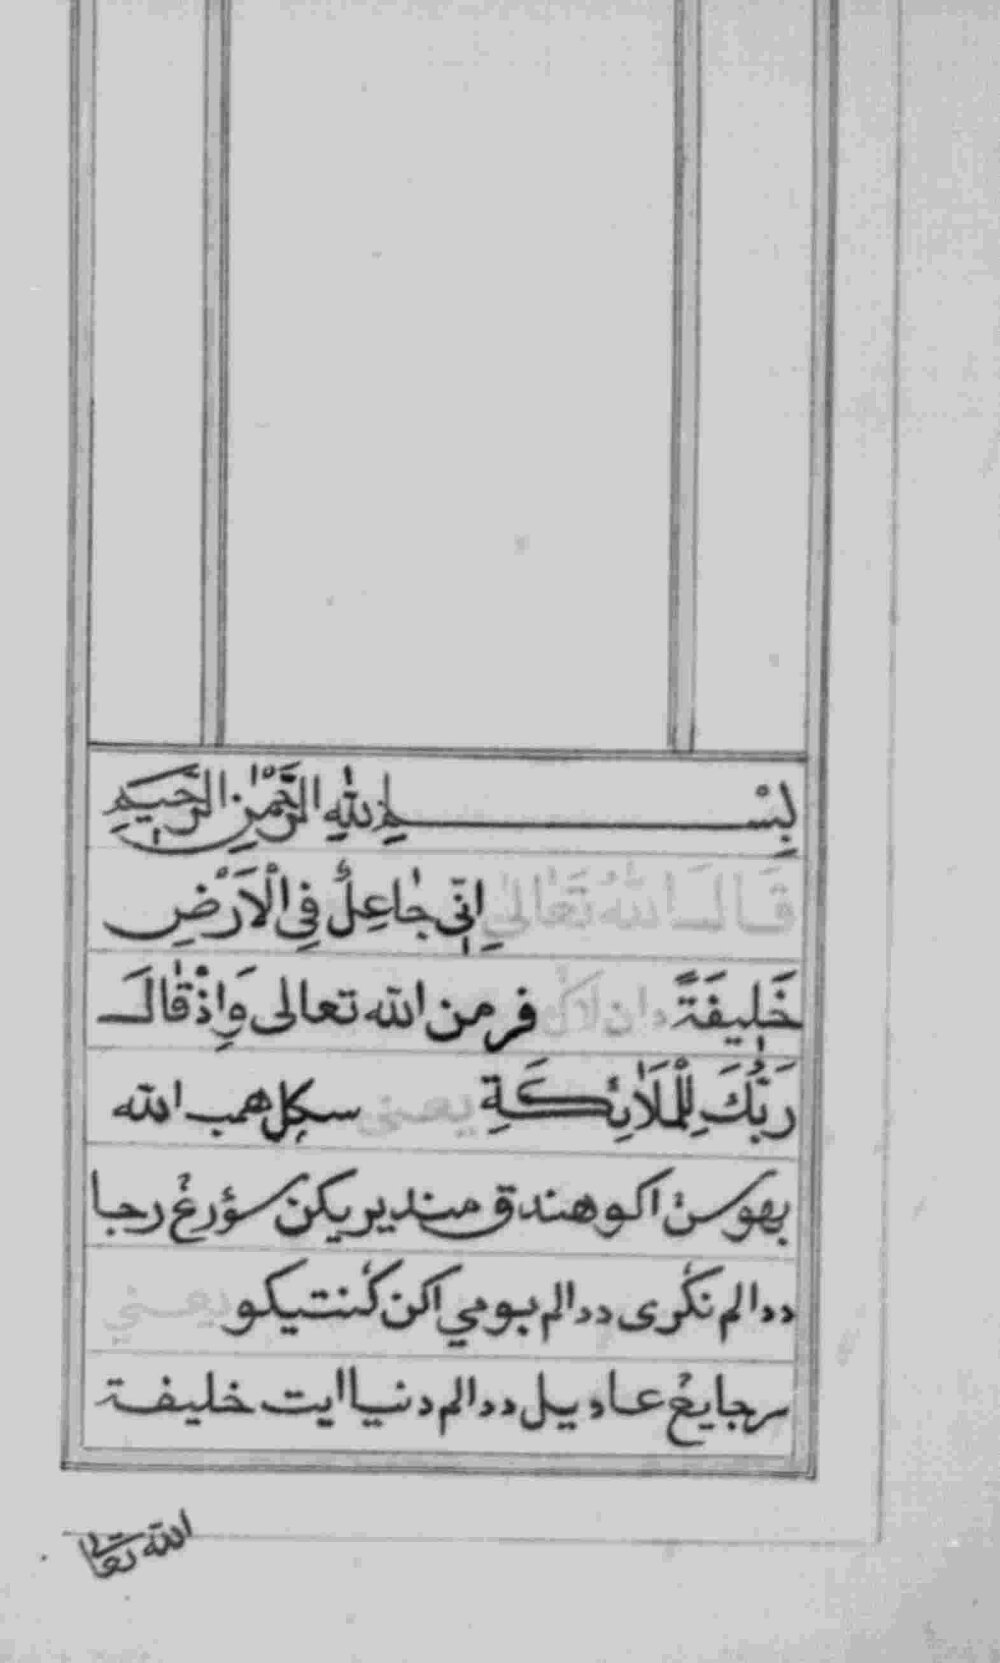 بِسْــــمِ اللهِ الرَّحْمٰنِ الرَّحِيمِ
قَالَ اللهُ تَعَالٰى اِنِّي جَاعِلٌ فِي الْاَرْضِ
خَلِيفَةً دان لاݢي فرمن الله تعالى وَاِذْ قَالَ
رَبُّكَ لِلْمَلَائِكَةِ يعني سكل همب الله
بهوسن اكو هندق منديريكن سؤرڠ رجا
ددالم نݢري ددالم بومي اكن ݢنتيكو يعني
رجا يڠ عاديل ددالم دنيا ايت خليفة
الله تعالى